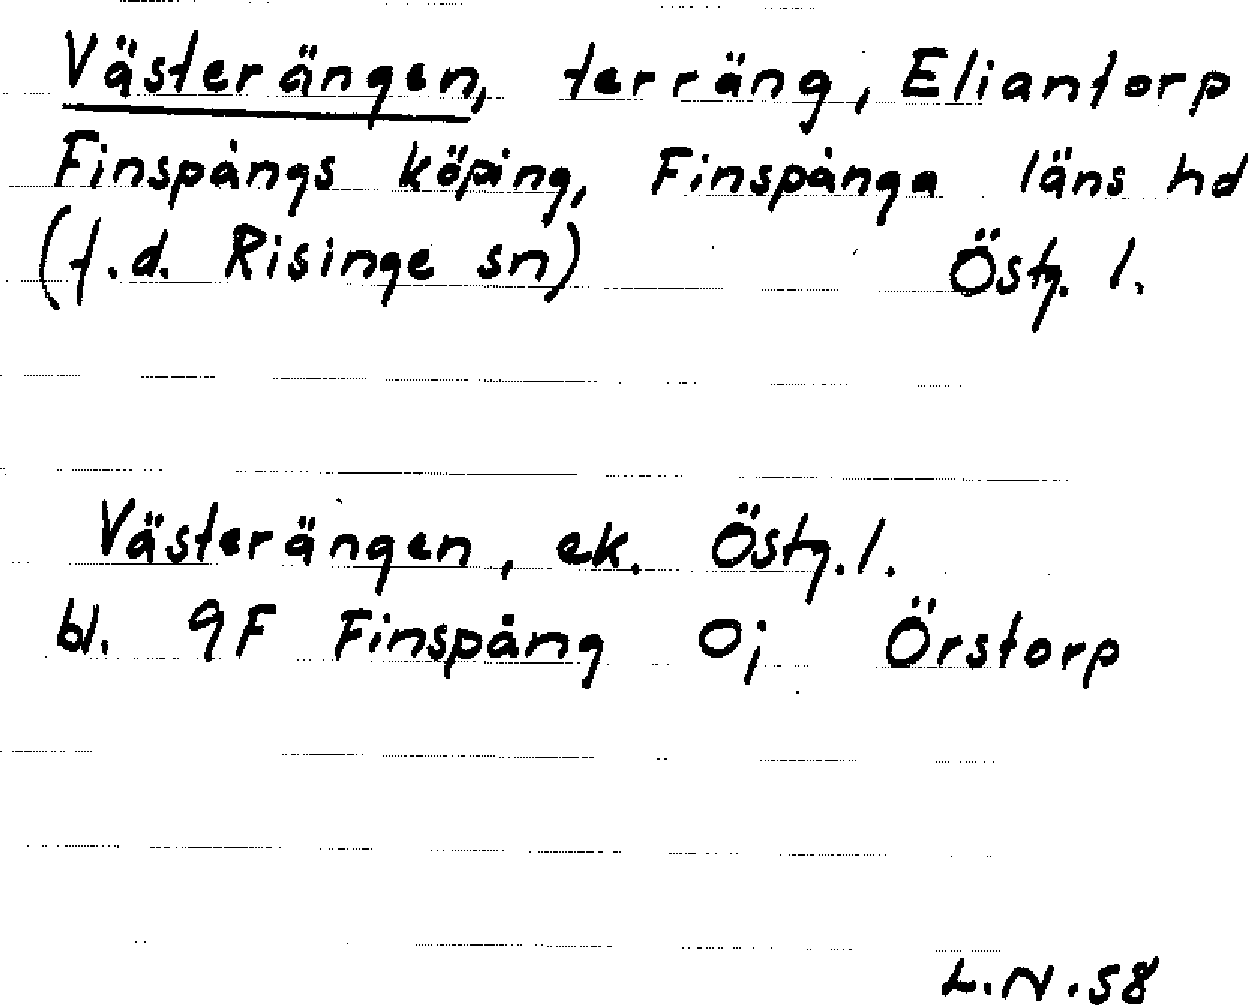 Västerängen, terräng, Eliantorp
Finspångs köping, Finspånga läns hd
(f.d. Risinge sn) Östg. l.
Västerängen, ek. Östg. l.
bl. 9F Finspång 0j Örstorp
L.N. 58